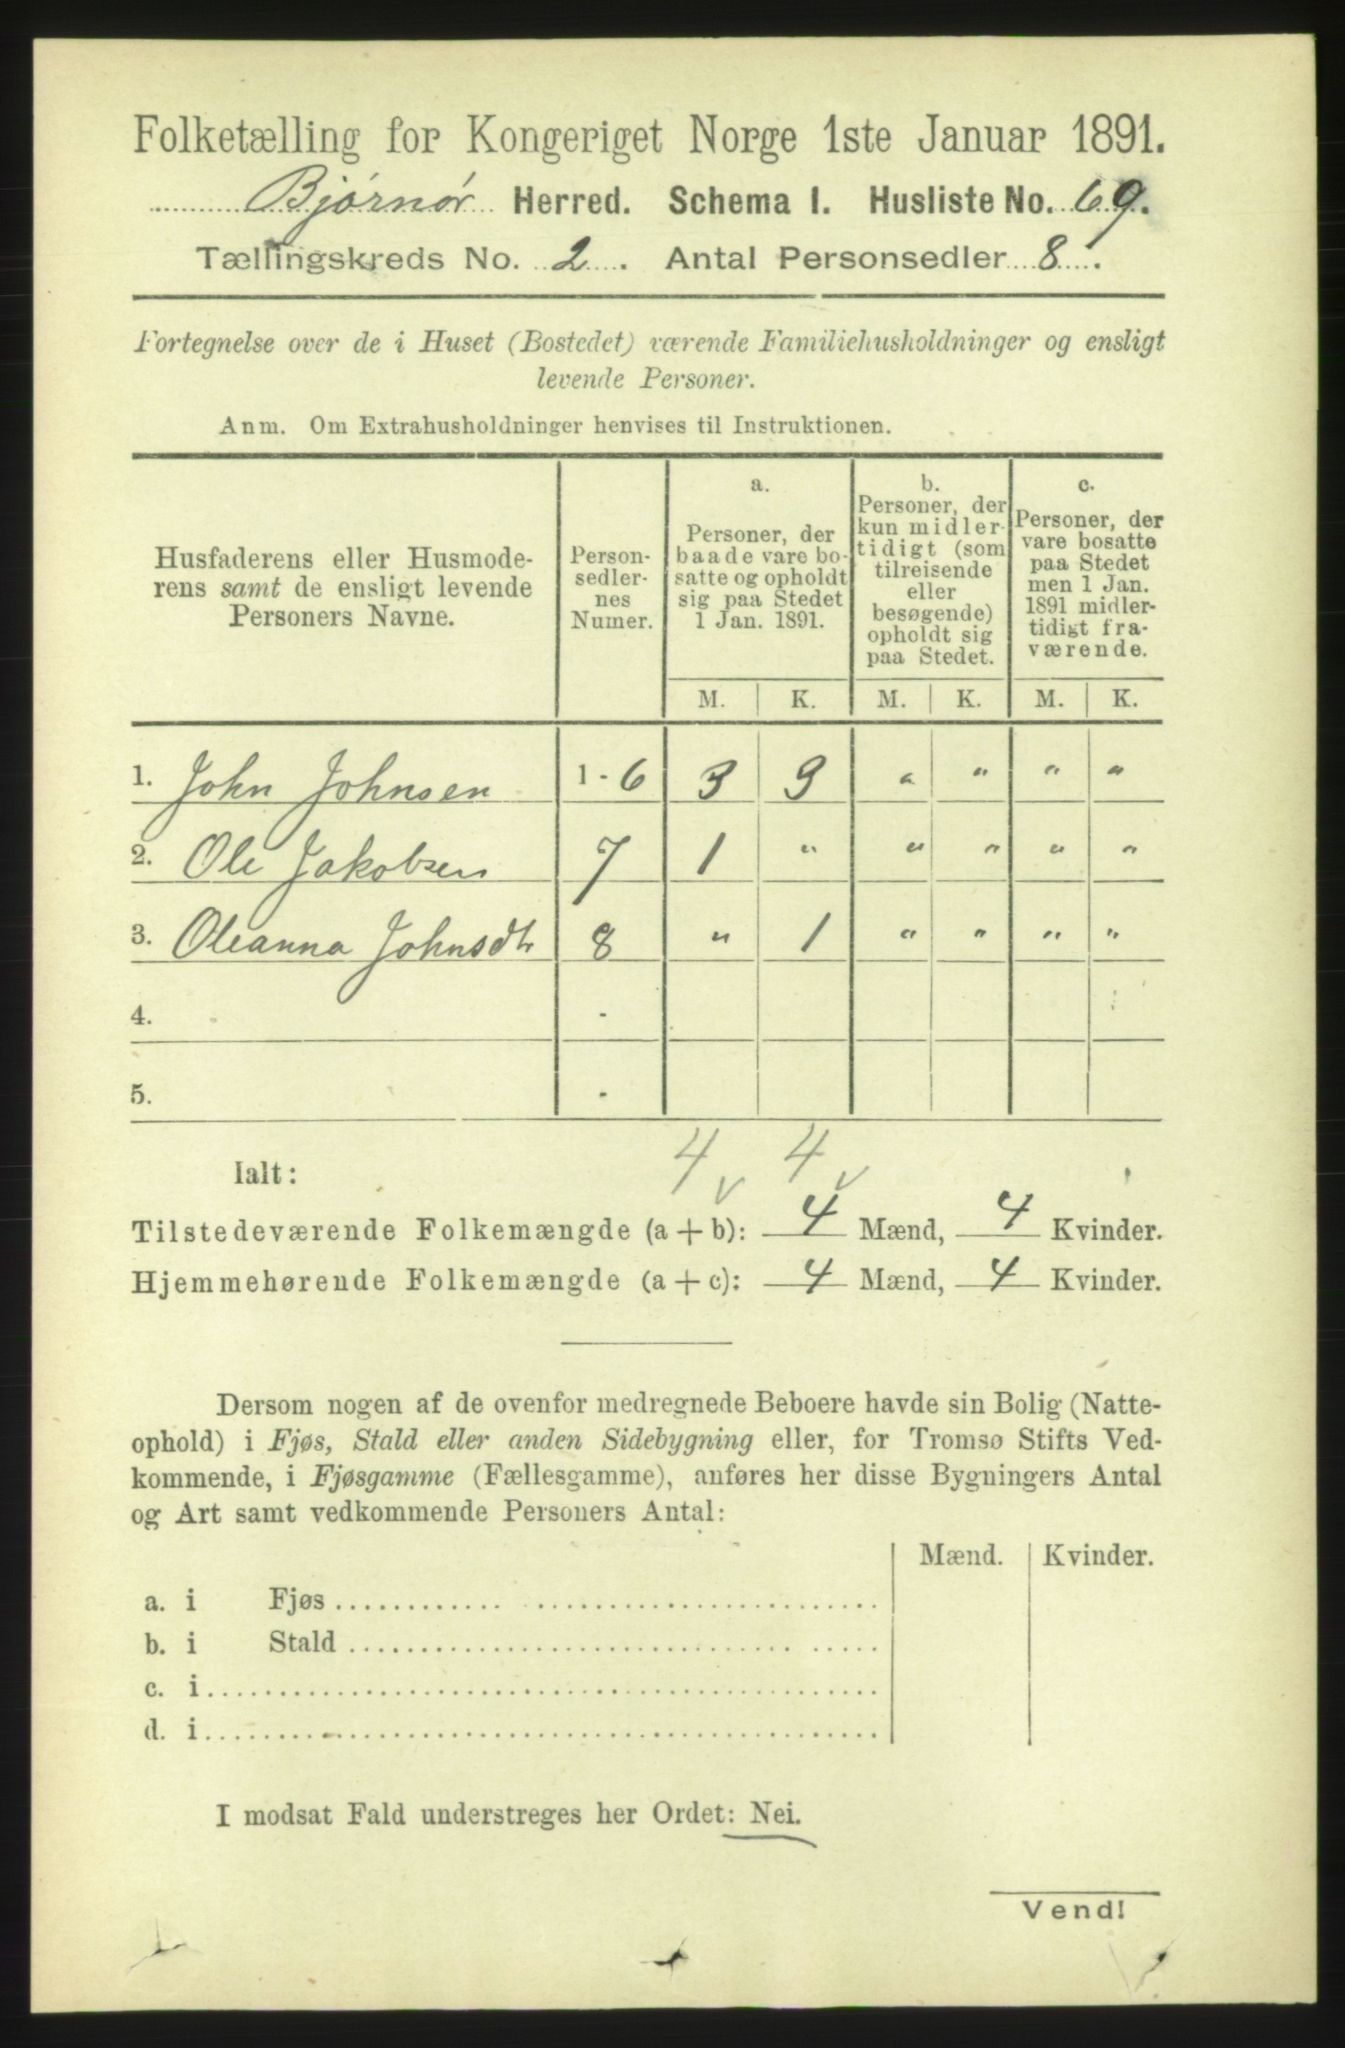 Folketælling for Kongeriget Norge 1ste Januar 1891.
Bjørnør Herred. Schema I. Husliste No. 69.
Tællingskreds No. 2. Antal Personsedler 8.
Fortegnelse over de i Huset (Bostedet) værende Familiehusholdninger og ensligt
levende Personer.
Anm. Om Extrahusholdninger henvises til Instruktionen.
Husfaderens eller Husmode-
rens samt de ensligt levende
Personers Navne.
Person-
sedler-
nes
Numer.
a.
Personer, der
baade vare bo-
satte og opholdt
sig paa Stedet
1 Jan. 1891.
b.
Personer, der
kun midler-
tidigt (som
tilreisende
eller
besøgende)
opholdt sig
paa Stedet.
c.
Personer, der
vare bosatte
paa Stedet
men 1 Jan.
1891 midler-
tidigt fra-
værende.
M. K. M. K. M. K.
1. John Johnsen 1 - 6 3 3 " " " "
2. Ole Jakobsen 7 1 " " " " "
3. Oleanna Johnsdtr 8 " 1 " " " "
4. -
5. -
Ialt: 4 4
Tilstedeværende Folkemængde (a + b): 4 Mænd, 4 Kvinder.
Hjemmehørende Folkemængde (a + c): 4 Mænd, 4 Kvinder.
Dersom nogen af de ovenfor medregnede Beboere havde sin Bolig (Natte-
ophold) i Fjøs, Stald eller anden Sidebygning eller, for Tromsø Stifts Ved-
kommende, i Fjøsgamme (Fællesgamme), anføres her disse Bygningers Antal
og Art samt vedkommende Personers Antal:
Mænd. Kvinder.
a. i Fjøs
b. i Stald
c. i
d. i
I modsat Fald understreges her Ordet: Nei.
Vend!